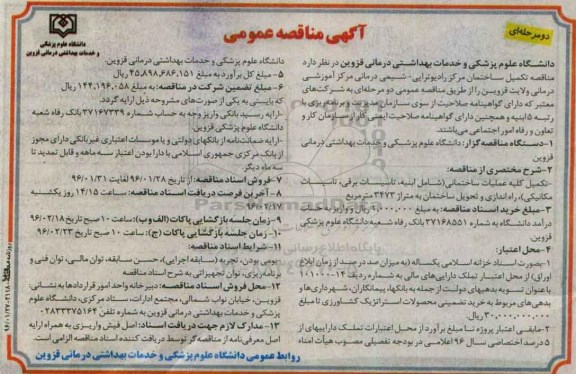 دومرحله‌ای
آگهی مناقصه عمومی
دانشگاه علوم پزشکی
و خدمات بهداشتی درمانی قزوین
دانشگاه علوم پزشکی و خدمات بهداشتی درمانی قزوین در نظر دارد
مناقصه تکمیل ساختمان مرکز رادیوتراپی- شیمی درمانی مرکز آموزشی
درمانی ولایت قزوین را از طریق مناقصه عمومی دو مرحله‌ای به شرکت‌های
معتبر که دارای گواهینامه صلاحیت از سوی سازمان مدیریت و برنامه‌ریزی با
رتبه ۵ ابنیه و همچنین دارای گواهینامه صلاحیت ایمنی کار از سازمان کار و
تعاون و رفاه امور اجتماعی می‌باشند.
۱-دستگاه مناقصه گزار: دانشگاه علوم پزشکی و خدمات بهداشتی درمانی
قزوین
۲-شرح مختصری از مناقصه:
-تکمیل کلیه عملیات ساختمانی (شامل ابنیه، تاسیسات برقی، تاسیسات
مکانیکی)، راه اندازی و تحویل ساختمان به متراژ ۲۴۷۳ مترمربع
۳-مبلغ خرید اسناد مناقصه: به مبلغ ریال و واریز به حساب
درآمد دانشگاه به شماره ۳۷۱۶۸۵۵۱ بانک رفاه شعبه دانشگاه علوم پزشکی
قزوین.
۴-محل اعتبار:
۱-بصورت اسناد خزانه اسلامی یکساله (به میزان صد در صد از زمان ابلاغ
اوراق) از محل اعتبار تملک دارایی‌های مالی به شماره ردیف ۱۴-۱۰۱۰۰۰
با عنوان تسویه بدهیهای دولت از جمله به بانکها، پیمانکاران، شهرداری‌ها و
بدهی‌های مربوط به خرید تضمینی محصولات استراتژیک کشاورزی تا مبلغ
۳۰,۰۰۰,۰۰۰,۰۰۰ ریال.
۲-مابقی اعتبار پروژه تا مبلغ برآورد از محل اعتبارات تملک داراییهای از
۵ درصد اختصاصی سال ۹۶ اعلامی در بودجه تفصیلی مصوب هیأت امناء
دانشگاه علوم پزشکی و خدمات بهداشتی درمانی قزوین.
۵- مبلغ کل برآورد به مبلغ ۴۵,۸۹۸,۶۸۶,۱۵۱ ریال
۶-مبلغ تضمین شرکت در مناقصه: به مبلغ ریال
که بایستی به یکی از صورت‌های مشروحه ذیل ارایه گردد.
-ارایه رسید بانکی واریز وجه به حساب شماره ۳۷۱۶۷۳۳۹ بانک رفاه شعبه
دانشگاه علوم پزشکی قزوین.
-ارایه ضمانت‌نامه از بانکهای دولتی و یا موسسات اعتباری غیربانکی دارای مجوز
از بانک مرکزی جمهوری اسلامی با دارا بودن اعتبار سه ماهه و قابل تمدید تا
سه ماه دیگر.
۷-فروش اسناد مناقصه: از تاریخ ۹۶/۰۱/۲۸ لغایت ۹۶/۰۱/۳۱
۸-آخرین فرصت دریافت اسناد مناقصه: ساعت ۱۴/۱۵ روز یکشنبه
۹-زمان جلسه بازگشایی پاکات (الف و ب): ساعت ۱۰ صبح تاریخ ۹۶/۰۲/۱۸
۱۰-زمان جلسه بازگشایی پاکات (ج): ساعت ۱۰ صبح تاریخ ۹۶/۰۲/۲۳
۱۱-شرایط اسناد مناقصه:
-بومی بودن، تجربه (سابقه اجرایی)، حسن سابقه، توان مالی، توان فنی و
برنامه‌ریزی، توان تجهیزاتی به شرح اسناد مناقصه
۱۲-محل فروش اسناد مناقصه: دبیرخانه واحد امور قراردادها به نشانی:
قزوین، خیابان نواب شمالی، مجتمع ادارات، ستاد مرکزی، دانشگاه علوم
پزشکی و خدمات بهداشتی درمانی قزوین به شماره تلفن ۰۲۸۳۳۳۷۵۱۶۴
۱۳-مدارک لازم جهت دریافت اسناد: اصل فیش واریزی به همراه ارایه
اصل معرفی‌نامه از مناقصه‌گر توسط دریافت کننده اسناد مناقصه الزامی است.
روابط عمومی دانشگاه علوم پزشکی و خدمات بهداشتی درمانی قزوین